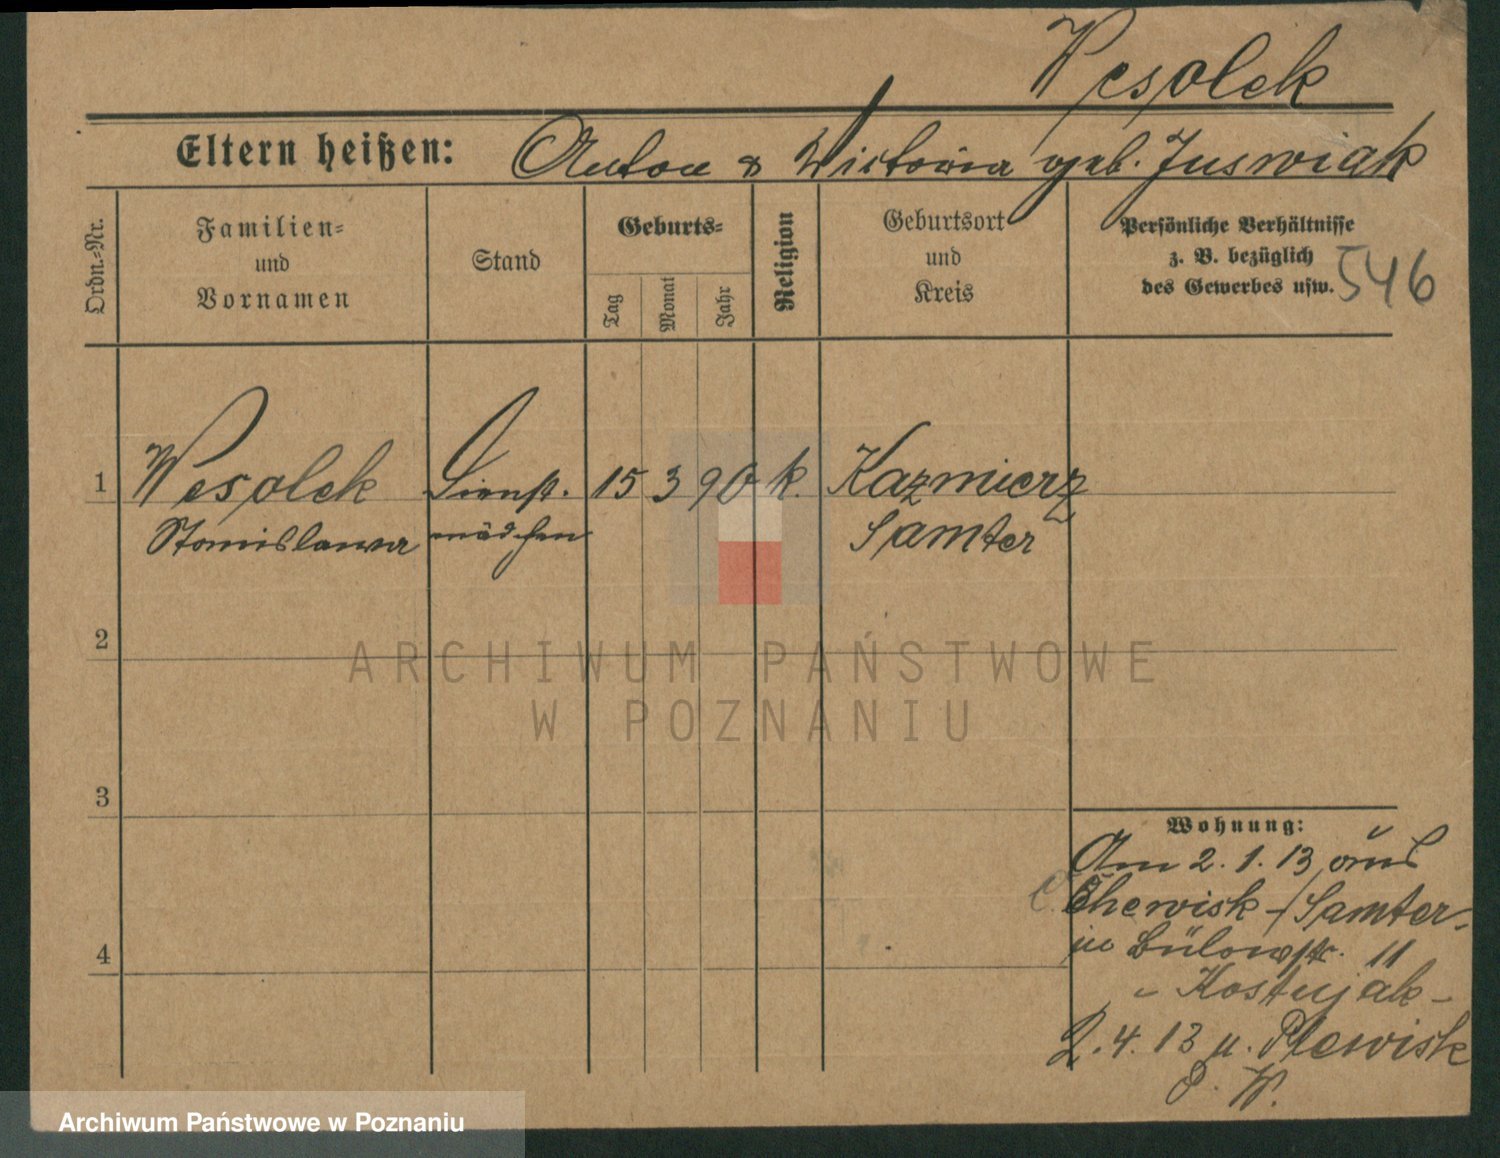 Wesolek
Eltern heißen: Anton & Victoria geb. Juswiak
Ordn.-Nr.
Familien-
und
Vornamen
Stand
Geburts-
Tag
Monat
Jahr
Religion
Geburtsort
und
Kreis
Persönliche Verhältnisse
z. B. bezüglich
des Gewerbes usw.
546
1 Wesolek Dienst- 15 3 90 k. Kazmierz
Stanislawa mädchen Samter
2
ARCHIWUM PAŃSTWOWE
W POZNANIU
3
Wohnung:
Am 2. 1. 13 aus
Chewisk - Samter -
in Bülowstr. 11
- Kostujak -
2. 4. 13 n. Plewisk
P. W.
4
Archiwum Państwowe w Poznaniu